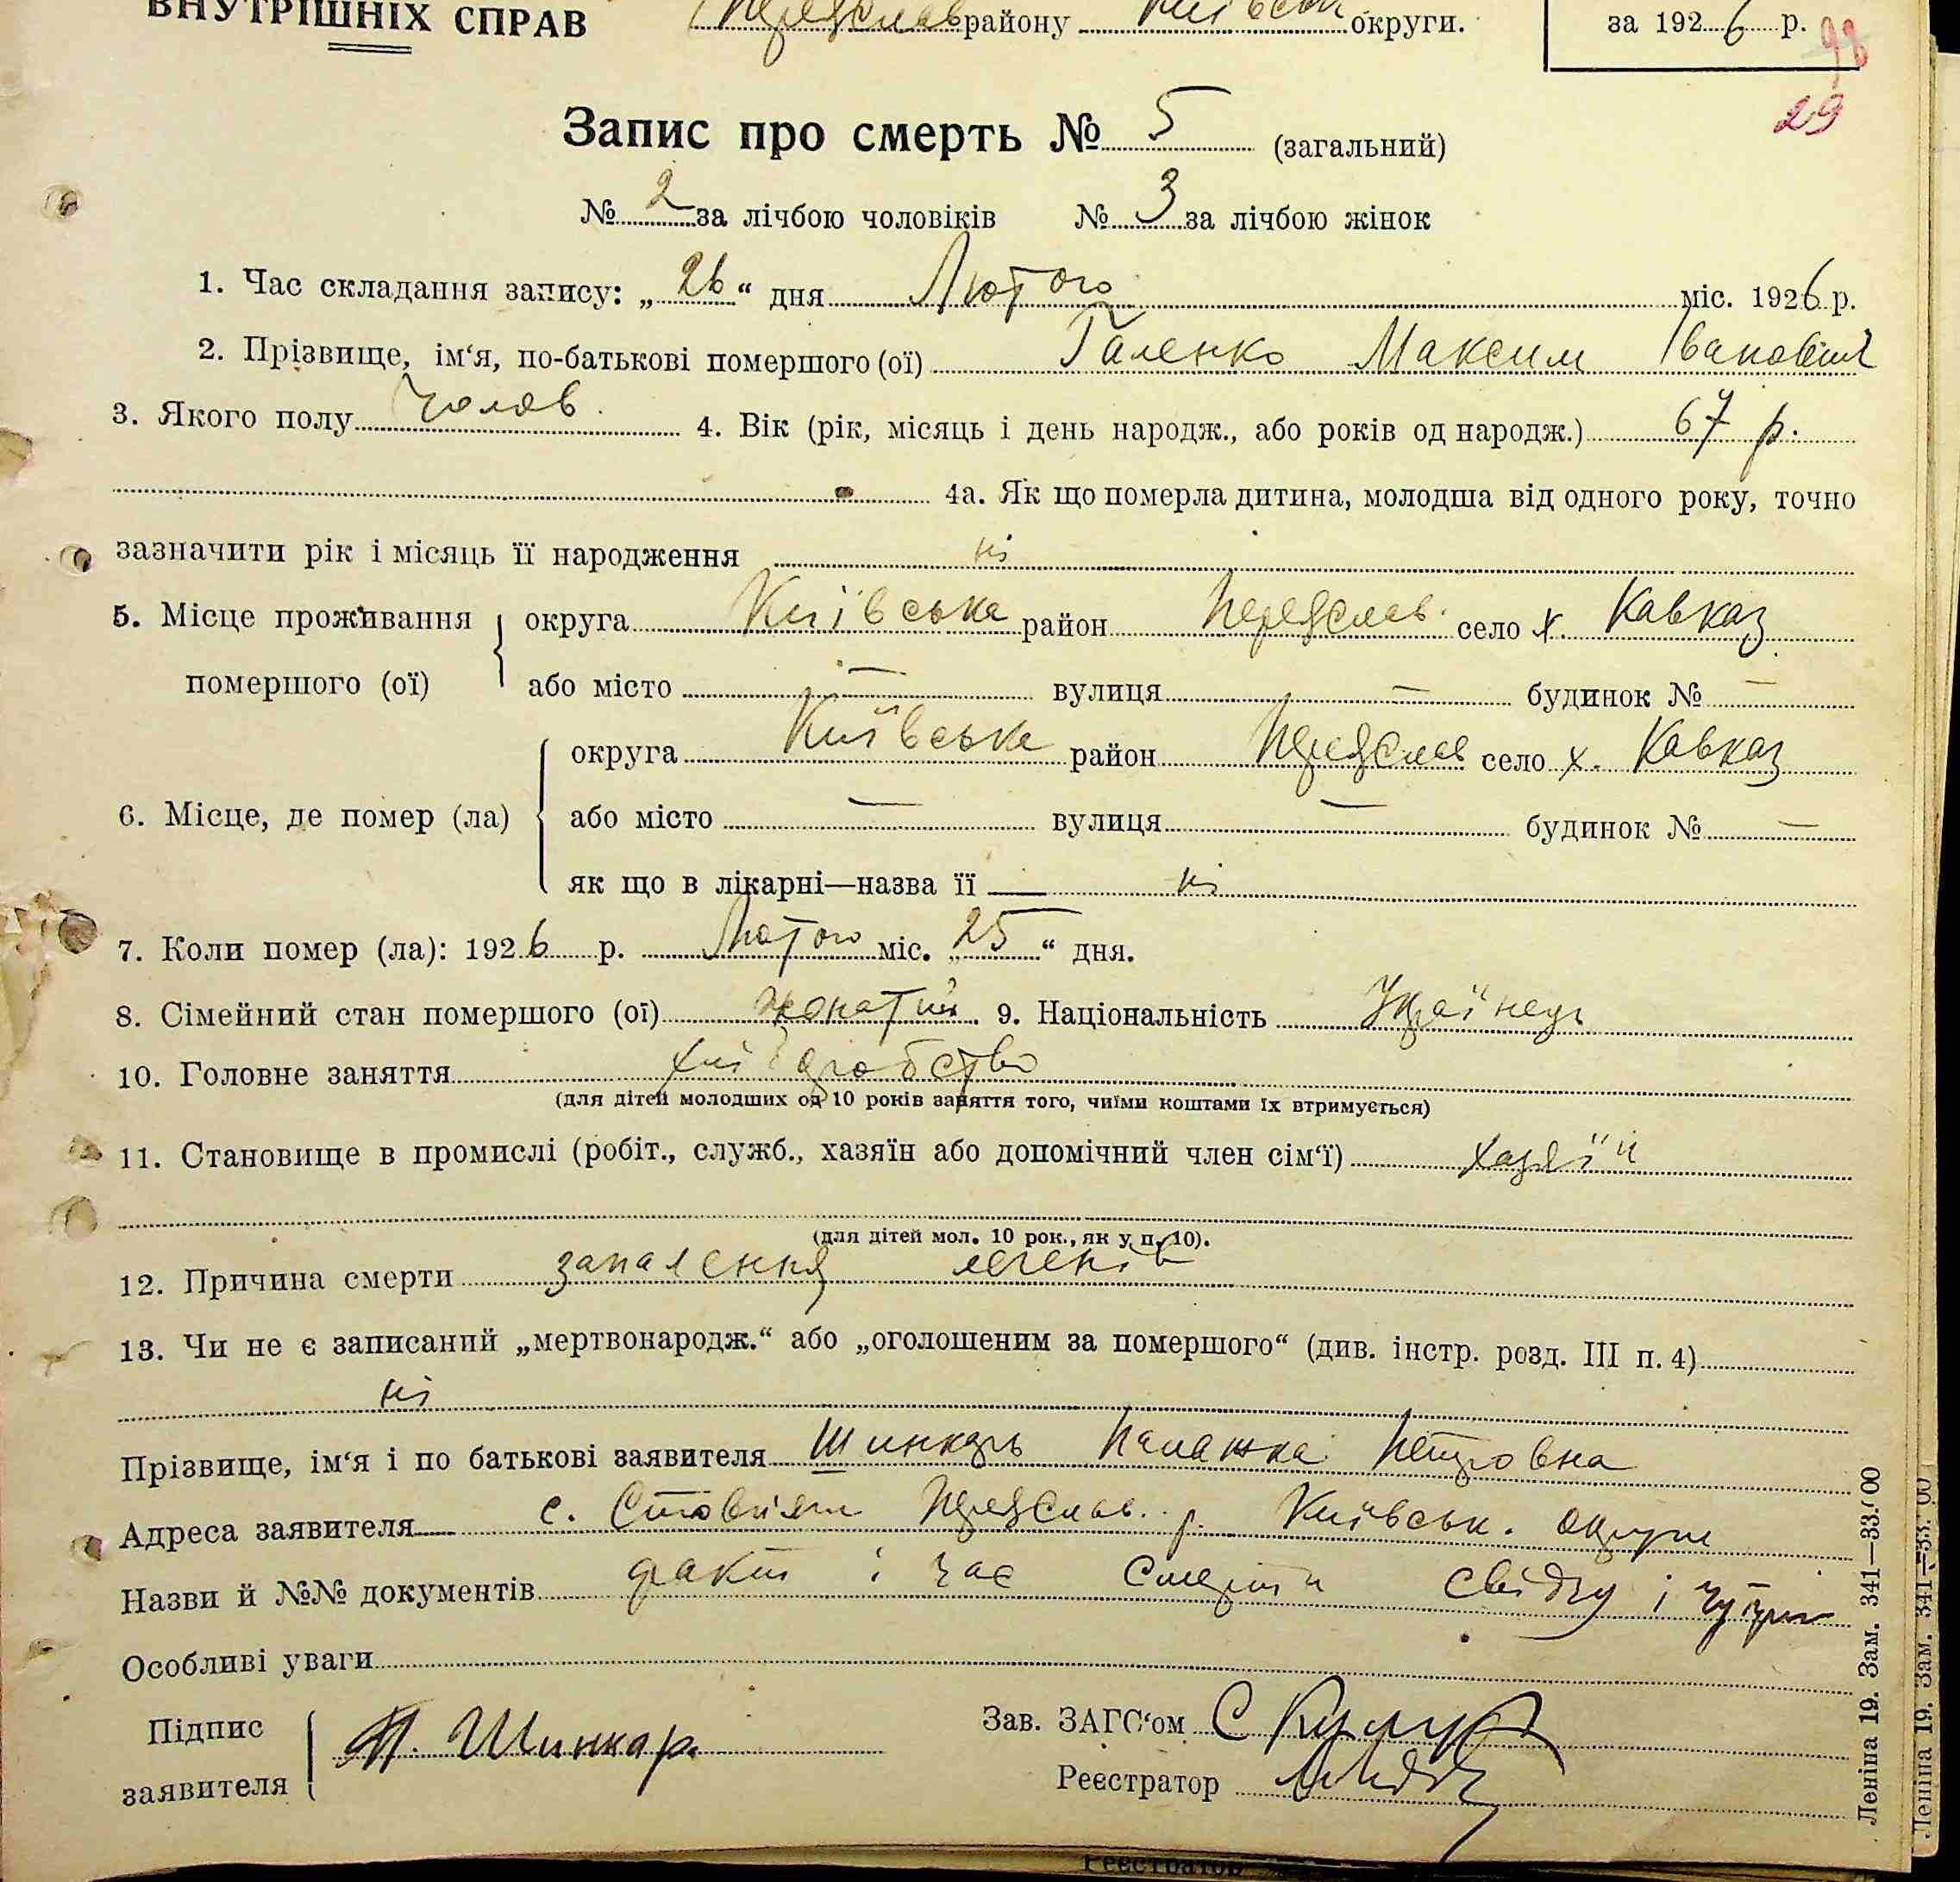 ВНУТРІШНІХ СПРАВ Переяслав району Київськ округи. за 192 6 р. 98
29
Запис про смерть № 5 (загальний)
№ 2 за лічбою чоловіків № 3 за лічбою жінок
1. Час складання запису: „ 26 “ дня Лютого міс. 1926 р.
2. Прізвище, ім‘я, по-батькові помершого (ої) Галенко Максим Іванович
3. Якого полу чолов. 4. Вік (рік, місяць і день народж., або років од народж.) 67 р.
4а. Як що померла дитина, молодша від одного року, точно
зазначити рік і місяць її народження ні
5. Місце проживання помершого (ої) округа Київська район Переяслав. село х. Кавказ
або місто — вулиця — будинок № —
6. Місце, де помер (ла) округа Київська район Переяслав село х. Кавказ
або місто — вулиця — будинок № —
як що в лікарні—назва її ні
7. Коли помер (ла): 192 6 р. Лютого міс. „ 25 “ дня.
8. Сімейний стан помершого (ої) жонатий. 9. Національність Українець
10. Головне заняття хліборобство
(для дітей молодших од 10 років заняття того, чиїми коштами їх втримується)
11. Становище в промислі (робіт., служб., хазяїн або допомічний член сім‘ї) хазяїн
(для дітей мол. 10 рок., як у п. 10).
12. Причина смерти запалення легенів
13. Чи не є записаний „мертвонародж.“ або „оголошеним за помершого“ (див. інстр. розд. III п. 4)
ні
Прізвище, ім‘я і по батькові заявителя Шинкарь Палажка Петровна
Адреса заявителя с. Стовп'яги Переяслав. р. Київськ. округи
Назви й №№ документів факт і час смерти свідчу і
Особливі уваги
Підпис заявителя П. Шинкар. Зав. ЗАГС‘ом
Реєстратор
Леніна 19. Зам. 341—33.000
Леніна 19. Зам. 341—33.
Реєстратор